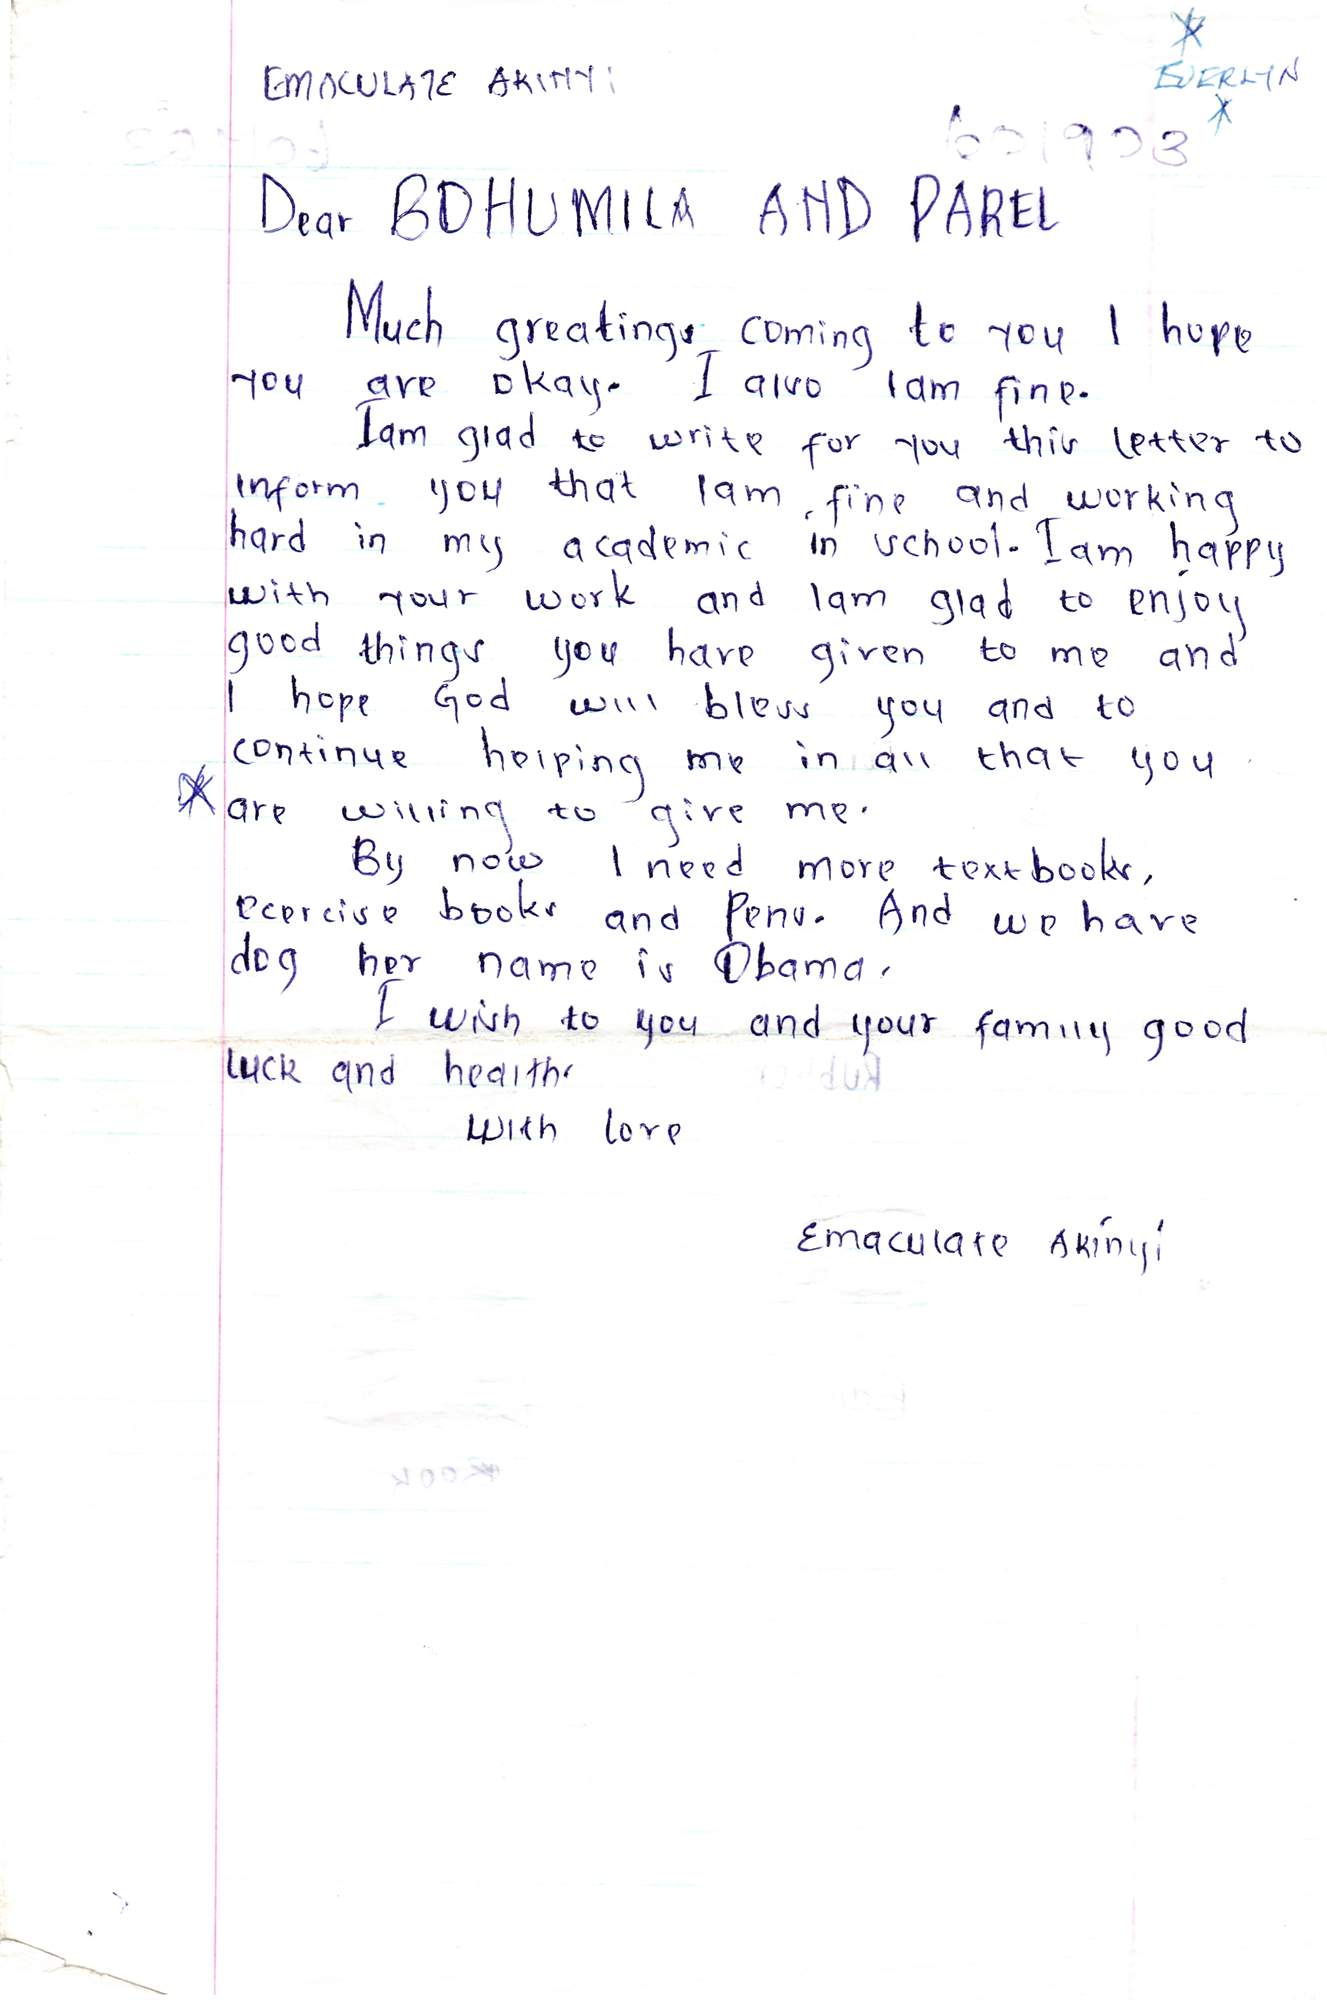 EMACULATE AKINYI
EVERLYN
Dear BOHUMILA AND PAREL
Much greatings coming to you I hope
you are okay. I also Iam fine.
Iam glad to write for you this letter to
inform you that Iam fine and working
hard in my academic in school. Iam happy
with your work and Iam glad to enjoy
good things you have given to me and
I hope God will bless you and to
continue helping me in all that you
are willing to give me.
By now I need more textbooks,
ecercise books and Pens. And we have
dog her name is Obama.
I wish to you and your family good
luck and health.
With love
Emaculate Akinyi